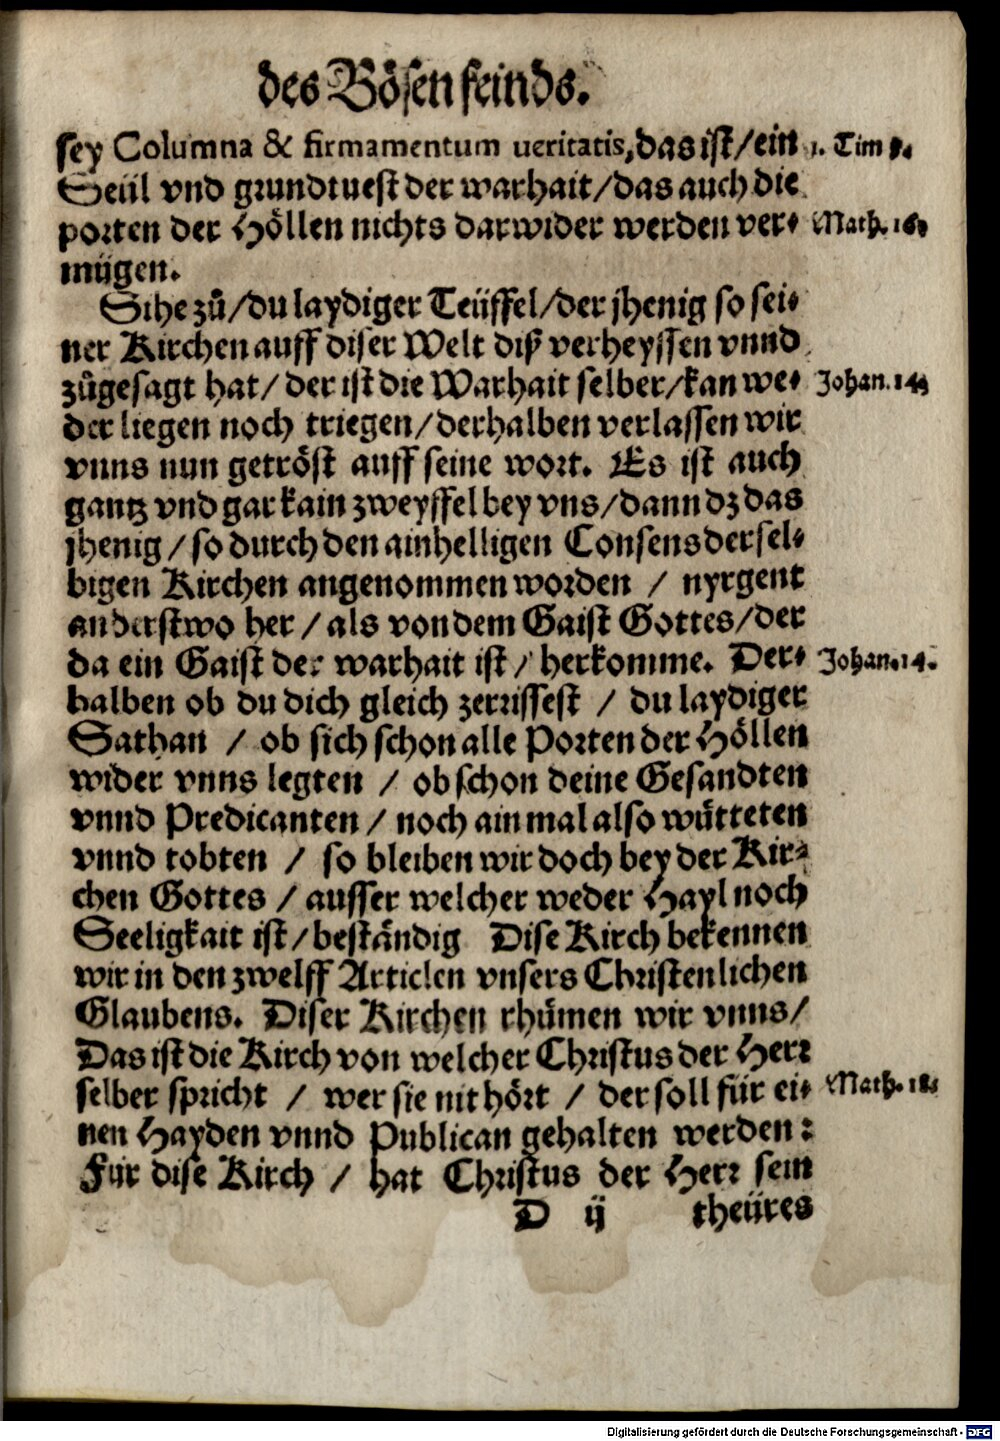 des Bösen feinds.
sey Columna & firmamentum ueritatis, das ist/ ein 1. Tim 3.
Seül vnd grundtuest der warhait/ das auch die
porten der Höllen nichts darwider werden ver= Math. 16.
mügen.
Sihe zů/ du laydiger Teüffel/ der jhenig so sei=
ner Kirchen auff diser Welt diß verheyssen vnnd
zůgesagt hat/ der ist die Warhait selber/ kan we= Johan. 14.
der liegen noch triegen/ derhalben verlassen wir
vnns nun getröst auff seine wort. Es ist auch
gantz vnd gar kain zweyffel bey vns/ dann dz das
jhenig/ so durch den ainhelligen Consens dersel=
bigen Kirchen angenommen worden / nyrgent
anderstwo her/ als von dem Gaist Gottes/ der
da ein Gaist der warhait ist/ herkomme. Der= Johan. 14.
halben ob du dich gleich zerrissest / du laydiger
Sathan / ob sich schon alle Porten der Höllen
wider vnns legten / ob schon deine Gesandten
vnnd Predicanten / noch ain mal also wütteten
vnnd tobten / so bleiben wir doch bey der Kir=
chen Gottes / ausser welcher weder Hayl noch
Seeligkait ist/ beständig Dise Kirch bekennen
wir in den zwelff Articlen vnsers Christenlichen
Glaubens. Diser Kirchen rhümen wir vnns/
Das ist die Kirch von welcher Christus der Herr
selber spricht / wer sie nit hört / der soll für ei= Math. 18.
nen Hayden vnnd Publican gehalten werden:
Für dise Kirch / hat Christus der Herr sein
D ij theüres
Digitalisierung gefördert durch die Deutsche Forschungsgemeinschaft - DFG